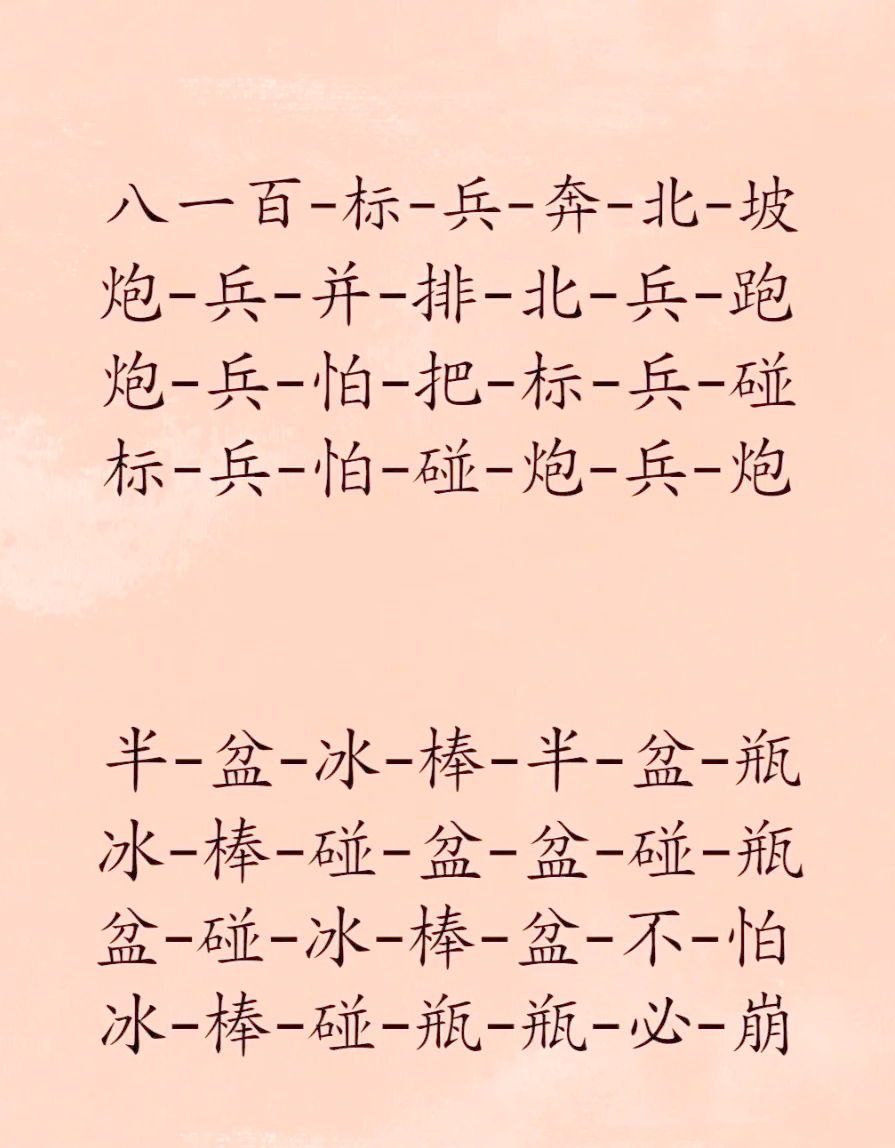 八一百-标-兵-奔-北-坡
炮-兵-并-排-北-兵-跑
炮-兵-怕-把-标-兵-碰
标-兵-怕-碰-炮-兵-炮
半-盆-冰-棒-半-盆-瓶
冰-棒-碰-盆-盆-碰-瓶
盆-碰-冰-棒-盆-不-怕
冰-棒-碰-瓶-瓶-必-崩